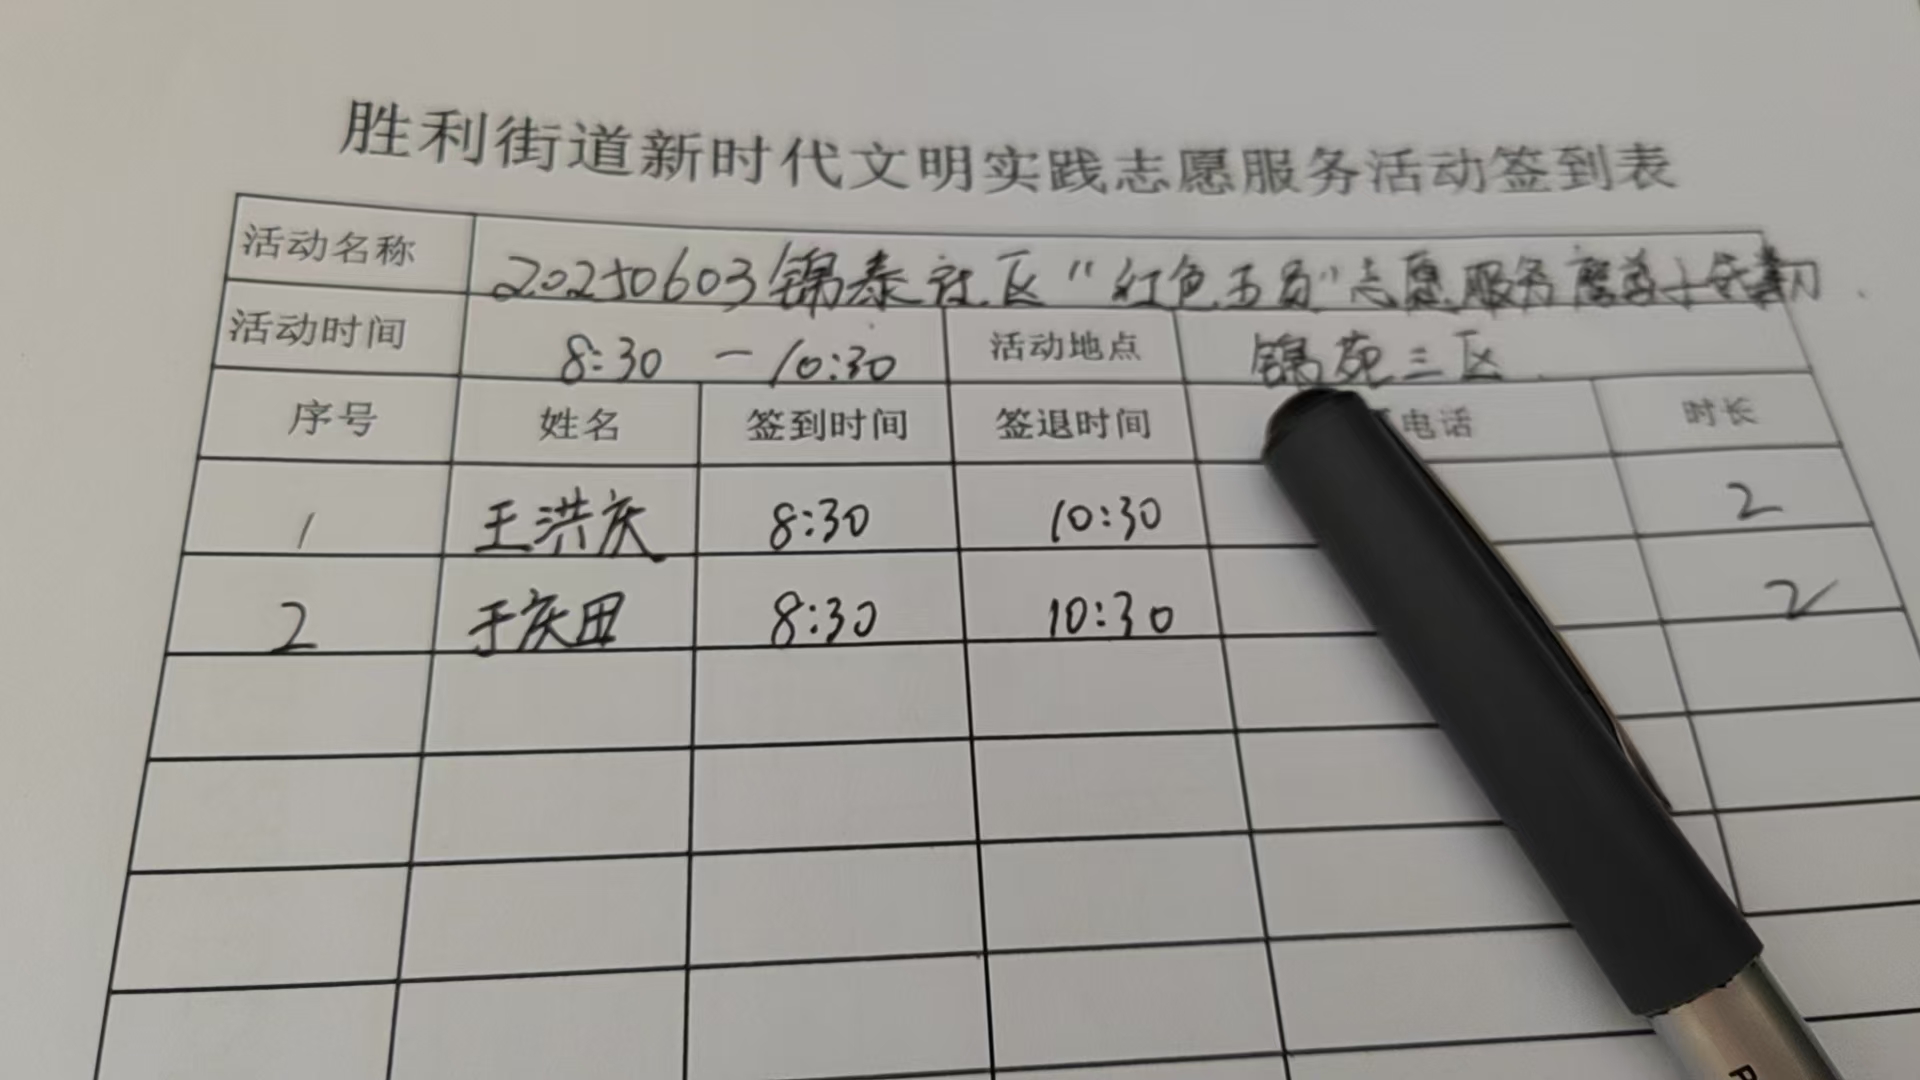 胜利街道新时代文明实践志愿服务活动签到表
活动名称 20250603锦泰社区“红色五员”志愿服务
活动时间 8:30 — 10:30 活动地点 锦苑三区
序号 姓名 签到时间 签退时间 电话 时长
1 王洪庆 8:30 10:30 2
2 于庆田 8:30 10:30 2